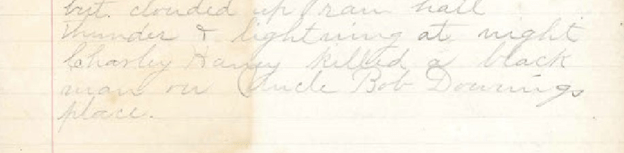 but clouded up rain hail
thunder & lightning at night
Charley Haney killed a black
man on Uncle Bob Downings
place.